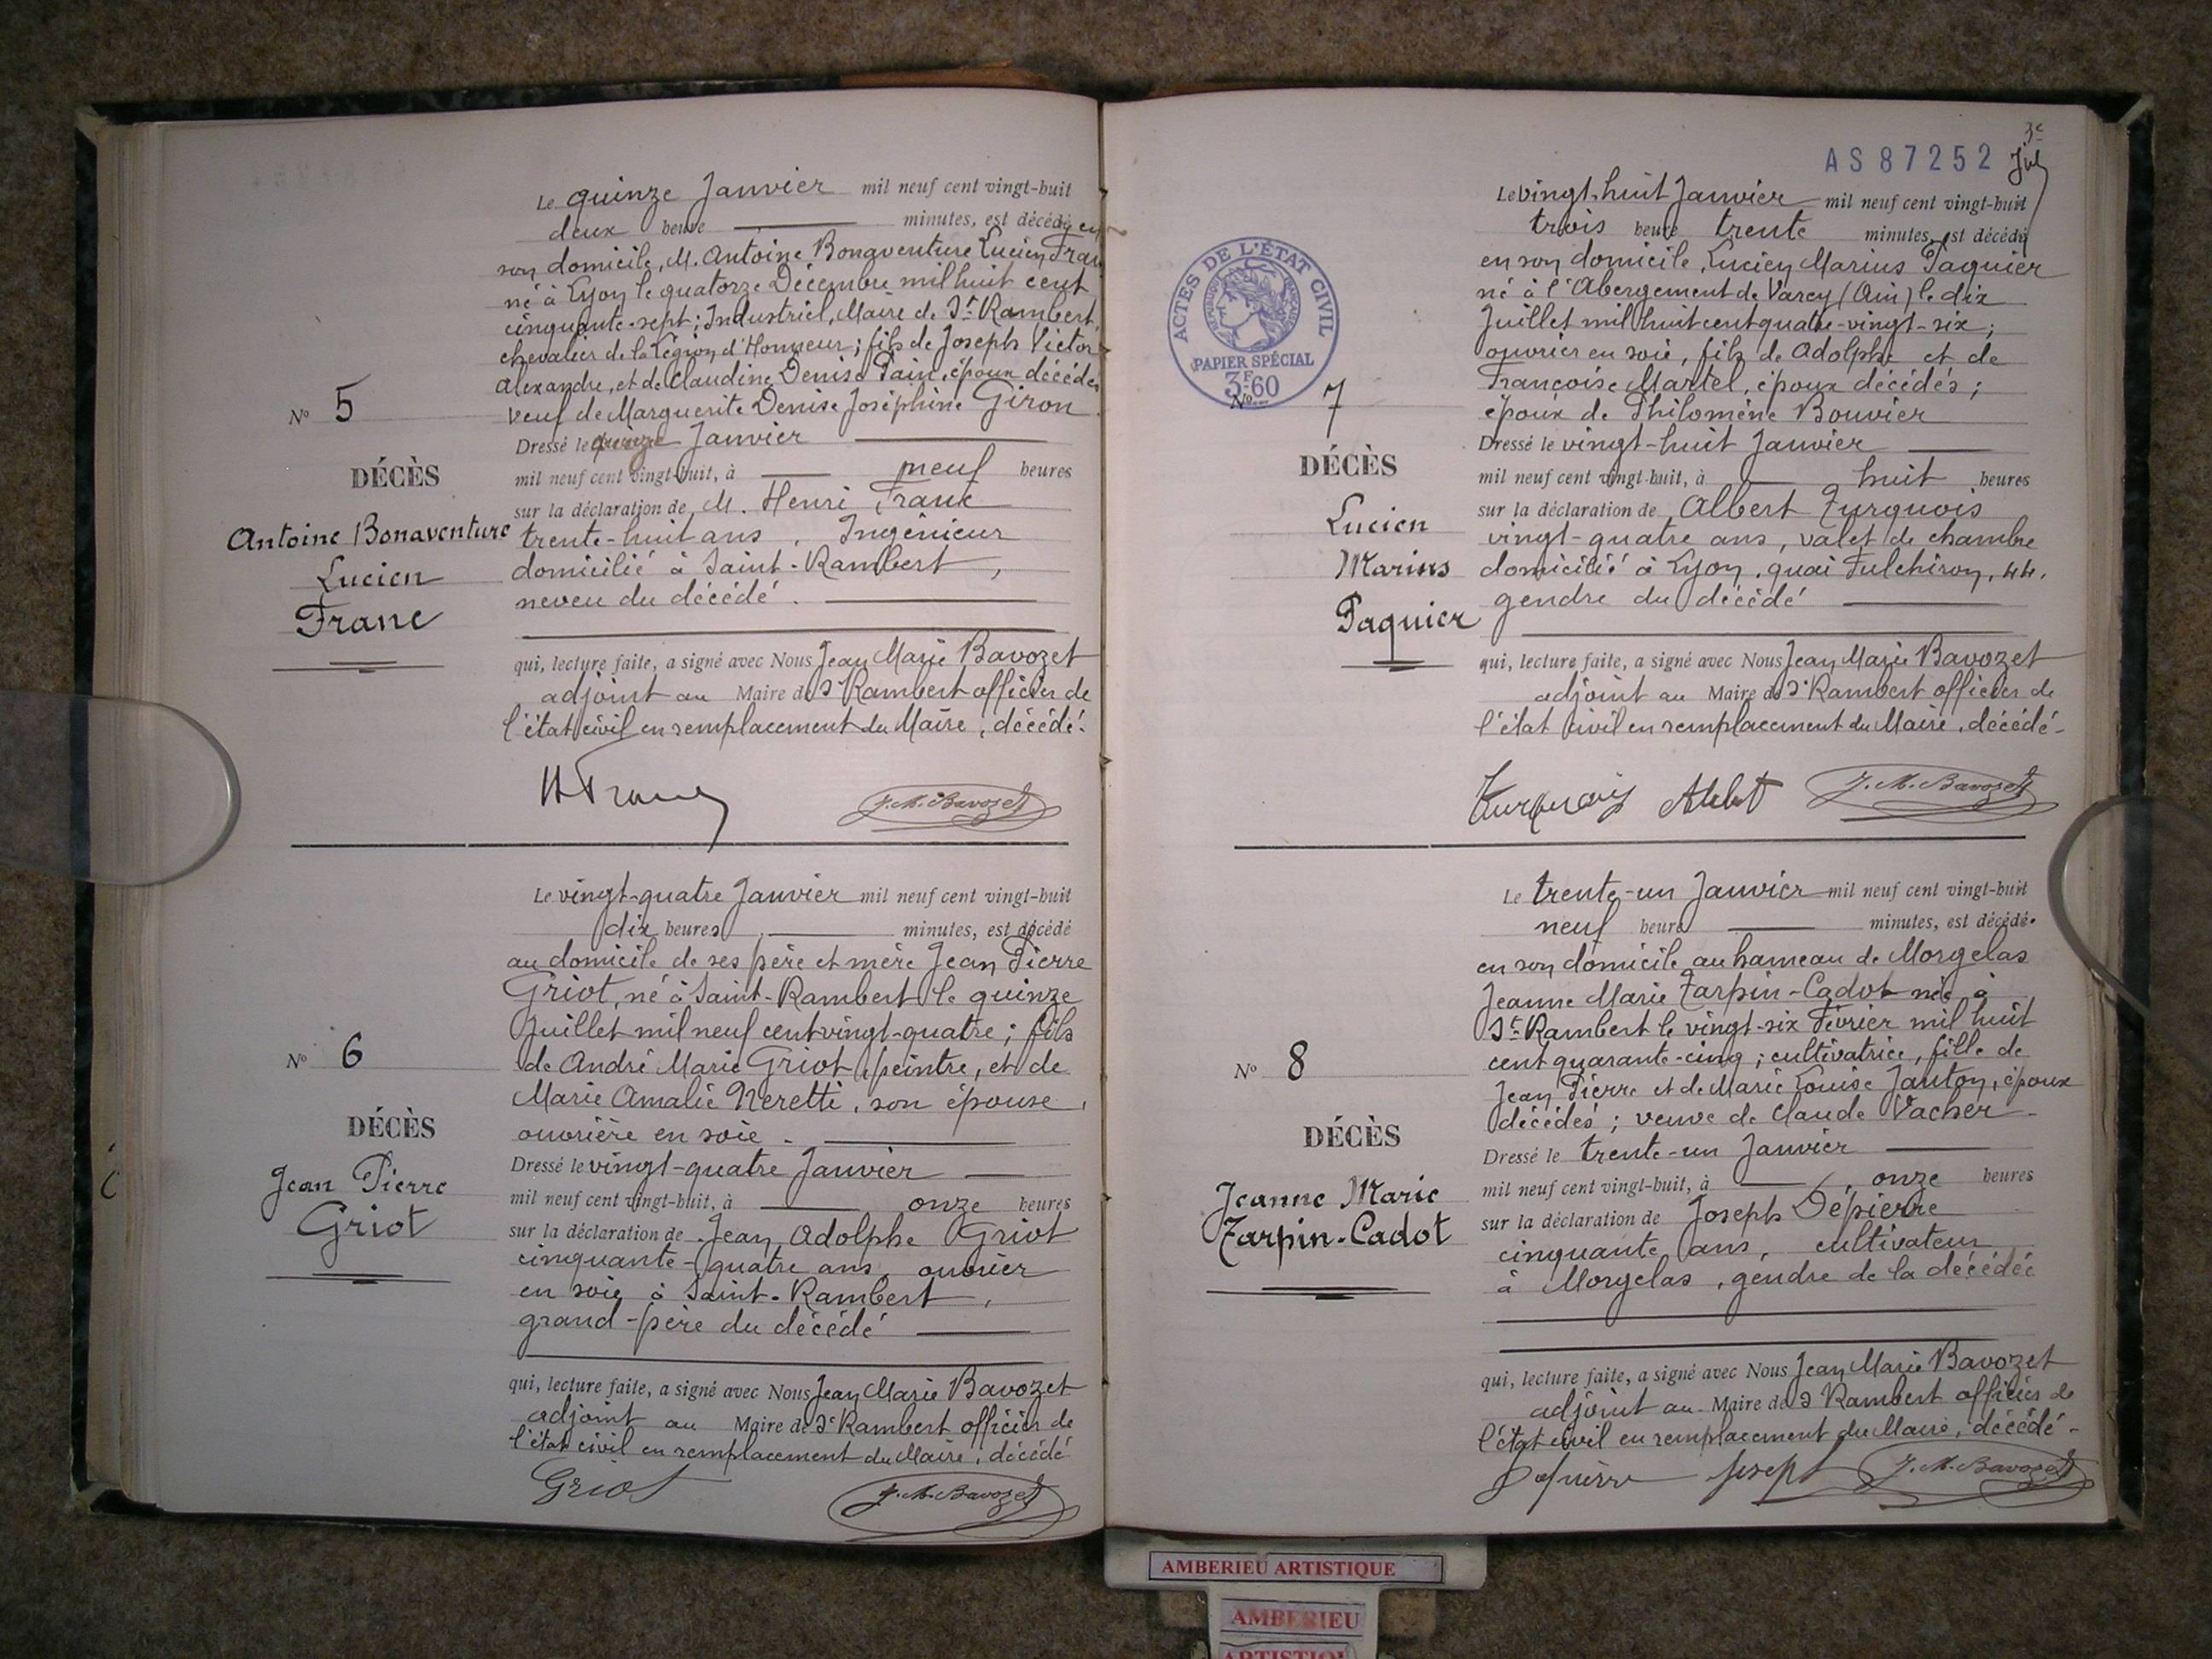 Le quinze Janvier mil neuf cent vingt-huit
deux heure minutes, est décédé en
son domicile, M. Antoine Bonaventure Lucien Fran
né à Lyon le quatorze Décembre mil huit cent
cinquante-sept ; Industriel, Maire de St Rambert
chevalier de la Légion d'Honneur ; fils de Joseph Victor
Alexandre, et de Claudine Denise Pain, époux décédés
veuf de Marguerite Denise Joséphine Giron
Dressé le quinze Janvier
mil neuf cent vingt-huit, à neuf heures
sur la déclaration de M. Henri Franc
trente-huit ans, Ingénieur
domicilié à Saint-Rambert,
neveu du décédé.
qui, lecture faite, a signé avec Nous Jean Marie Bavozet
adjoint au Maire de St Rambert officier de
l'état civil en remplacement du Maire, décédé.
No 5
DÉCÈS
Antoine Bonaventure
Lucien
Franc
HFranc J. M. Bavozet
Le vingt-quatre Janvier mil neuf cent vingt-huit
dix heures minutes, est décédé
au domicile de ses père et mère Jean Pierre
Griot, né à Saint-Rambert le quinze
Juillet mil neuf cent vingt-quatre ; fils
de André Marie Griot, peintre, et de
Marie Amalie Neretti, son épouse,
ouvrière en soie.
Dressé le vingt-quatre Janvier
mil neuf cent vingt-huit, à onze heures
sur la déclaration de Jean Adolphe Griot
cinquante-quatre ans, ouvrier
en soie à Saint-Rambert,
grand-père du décédé
qui, lecture faite, a signé avec Nous Jean Marie Bavozet
adjoint au Maire de St Rambert officier de
l'état civil en remplacement du Maire, décédé
No 6
DÉCÈS
Jean Pierre
Griot
Griot J. M. Bavozet
3e
AS 87252
ACTES DE L'ÉTAT CIVIL
RÉPUBLIQUE FRANÇAISE
PAPIER SPÉCIAL
3F60
Le vingt-huit Janvier mil neuf cent vingt-huit
trois heure trente minutes, est décédé
en son domicile, Lucien Marius Paquier
né à l'Abergement de Varey (Ain) le dix
Juillet mil huit cent quatre-vingt-six ;
ouvrier en soie, fils de Adolphe et de
Françoise Martel, époux décédés ;
époux de Philomène Bouvier
Dressé le vingt-huit Janvier
mil neuf cent vingt-huit, à huit heures
sur la déclaration de Albert Turquois
vingt-quatre ans, valet de chambre
domicilié à Lyon, quai Fulchiron, 44,
gendre du décédé
qui, lecture faite, a signé avec Nous Jean Marie Bavozet
adjoint au Maire de St Rambert officier de
l'état civil en remplacement du Maire, décédé-
No 7
DÉCÈS
Lucien
Marius
Paquier
Turquois Albert J. M. Bavozet
Le trente-un Janvier mil neuf cent vingt-huit
neuf heure minutes, est décédé
en son domicile au hameau de Morgelas
Jeanne Marie Tarpin-Cadot née à
St Rambert le vingt-six Février mil huit
cent quarante-cinq ; cultivatrice, fille de
Jean Pierre et de Marie Louise Janton, époux
décédés ; veuve de Claude Vacher-
Dressé le trente-un Janvier
mil neuf cent vingt-huit, à onze heures
sur la déclaration de Joseph Dépierre
cinquante ans, cultivateur
à Morgelas, gendre de la décédée
qui, lecture faite, a signé avec Nous Jean Marie Bavozet
adjoint au Maire de St Rambert officier de
l'état civil en remplacement du Maire, décédé-
No 8
DÉCÈS
Jeanne Marie
Tarpin-Cadot
Depierre Joseph J. M. Bavozet
AMBERIEU ARTISTIQUE
AMBERIEU
ARTISTIQU